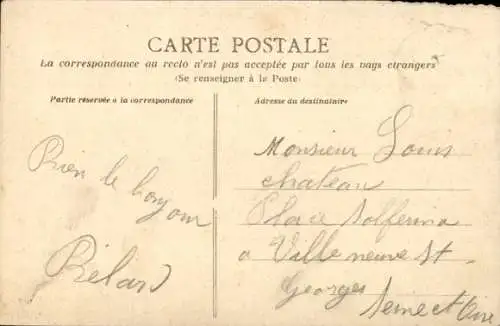 CARTE POSTALE
La correspondance au recto n'est pas acceptée par tous les pays étrangers
(Se renseigner à la Poste)
Partie réservée à la correspondance
Adresse du destinataire
Bien le bonjour
Monsieur Louis
chateau
Place Solferino
a Ville neuve St
Georges
Seine et Oise